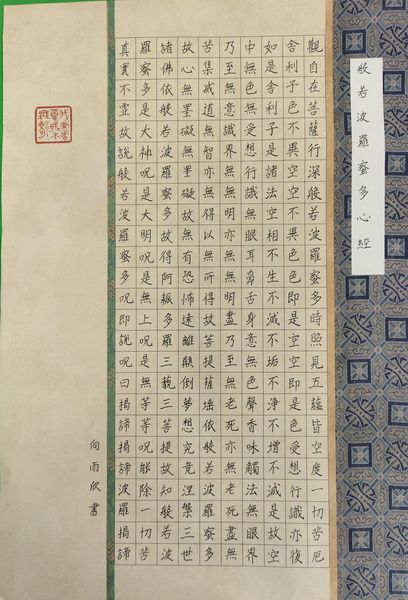 般若波羅蜜多心經
觀自在菩薩行深般若波羅蜜多時照見五蘊皆空度一切苦厄
舍利子色不異空空不異色色即是空空即是色受想行識亦復
如是舍利子是諸法空相不生不滅不垢不淨不增不減是故空
中無色無受想行識無眼耳鼻舌身意無色聲香味觸法無眼界
乃至無意識界無無明亦無無明盡乃至無老死亦無老死盡無
苦集滅道無智亦無得以無所得故菩提薩埵依般若波羅蜜多
故心無罣礙無罣礙故無有恐怖遠離顛倒夢想究竟涅槃三世
諸佛依般若波羅蜜多故得阿耨多羅三藐三菩提故知般若波
羅蜜多是大神呪是大明呪是無上呪是無等等呪能除一切苦
真實不虛故說般若波羅蜜多呪即說呪曰揭諦揭諦波羅揭諦
向雨欣書